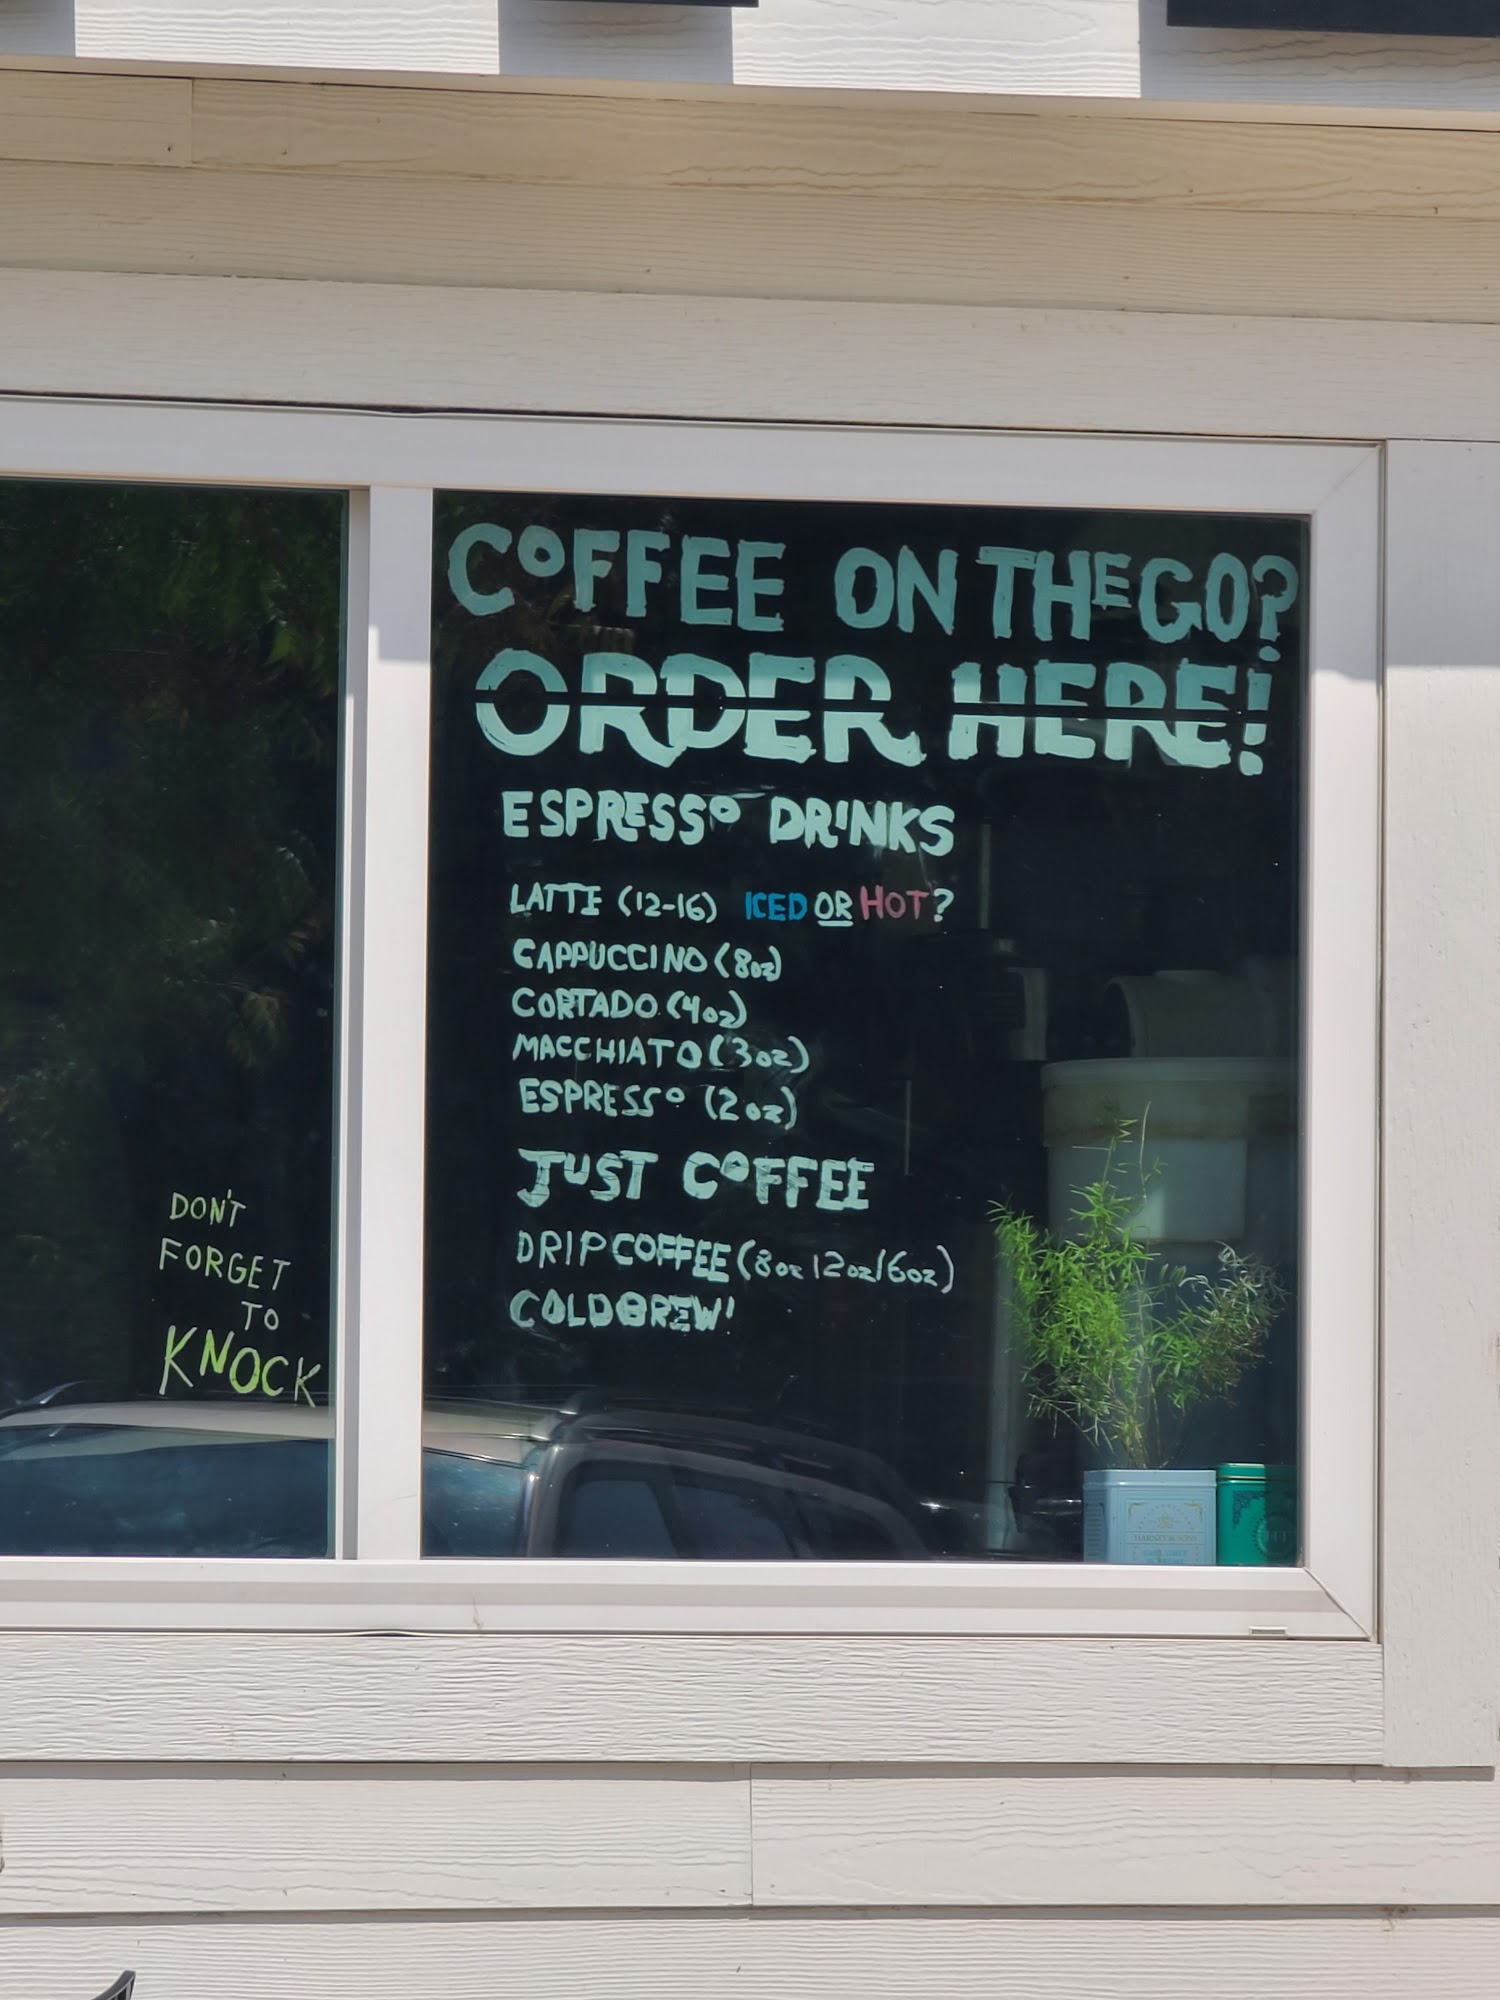 COFFEE ON THE GO?
ORDER HERE!
ESPRESSO DRINKS
LATTE (12-16) ICED OR HOT?
CAPPUCCINO (8oz)
CORTADO (4oz)
MACCHIATO (3oz)
ESPRESSO (2oz)
JUST COFFEE
DRIP COFFEE (8oz 12oz 16oz)
COLDBREW
DON'T
FORGET
TO
KNOCK
HARNEY & SONS